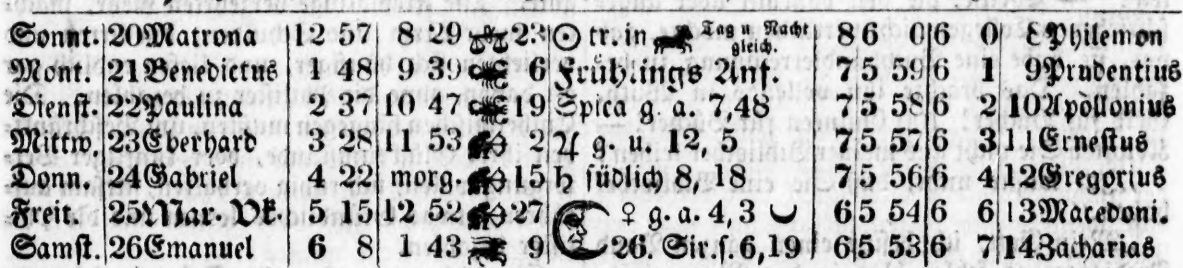 Sonnt. 20 Matrona 12 57 8 29 ♎ 23 ☉ tr. in ♈ Tag u Nacht gleich. 8 6 0 6 0 8 Philemon
Mont. 21 Benedictus 1 48 9 39 ♏ 6 Frühlings Anf. 7 5 59 6 1 9 Prudentius
Dienst. 22 Paulina 2 37 10 47 ♏ 19 Spica g. a. 7,48 7 5 58 6 2 10 Apollonius
Mittw. 23 Eberhard 3 28 11 53 2 ♃ g. u. 12, 5 7 5 57 6 3 11 Ernestus
Donn. 24 Gabriel 4 22 morg. 15 ♄ südlich 8, 18 7 5 56 6 4 12 Gregorius
Freit. 25 Mar. Vk. 5 15 12 52 27 ♀ g. a. 4,3 6 5 54 6 6 13 Macedoni.
Samst. 26 Emanuel 6 8 1 43 9 26. Sir. s. 6,19 6 5 53 6 7 14 Zacharias